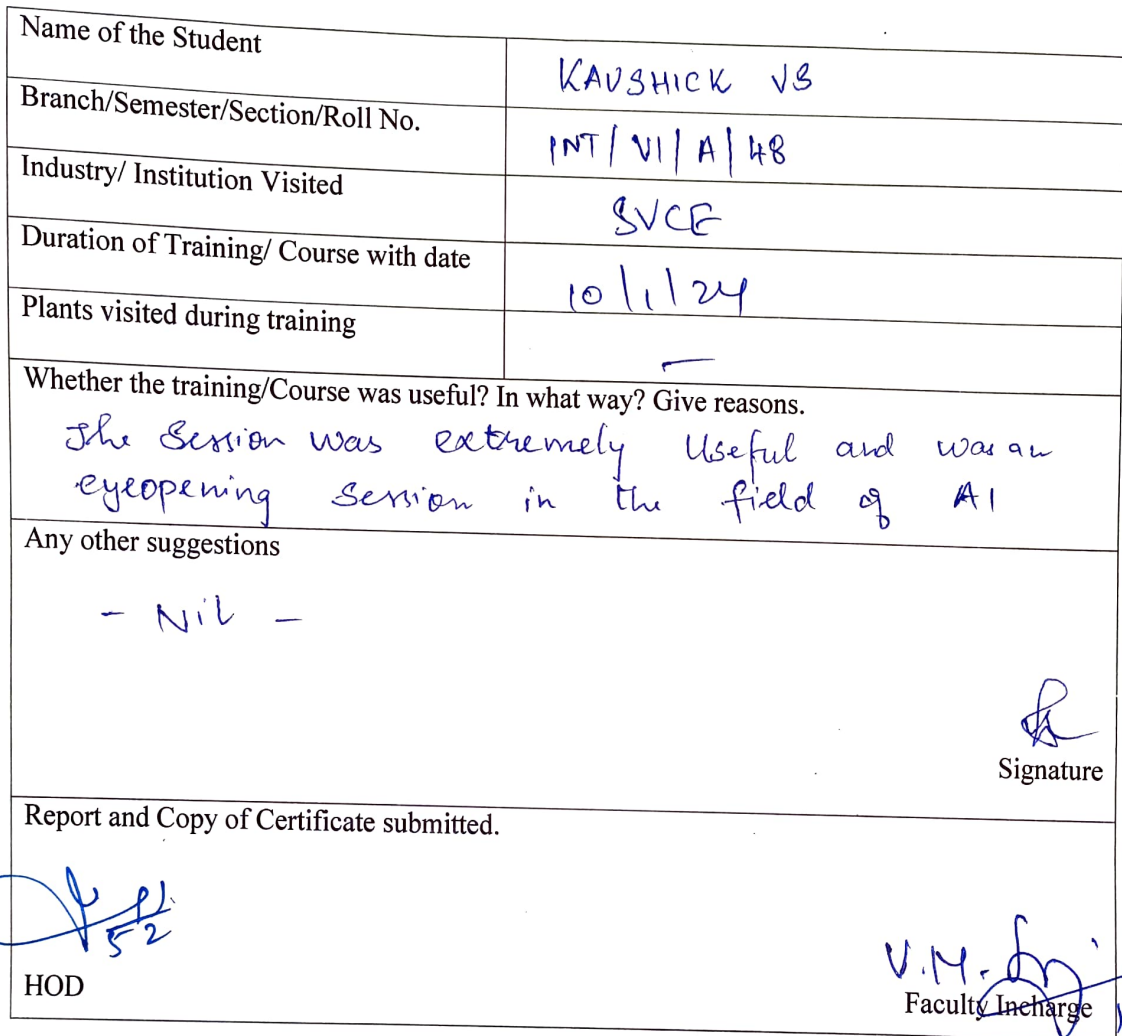 Name of the Student
KAUSHICK VS
Branch/Semester/Section/Roll No.
INT/VI/A/48
Industry/ Institution Visited
SVCE
Duration of Training/ Course with date
10/1/24
Plants visited during training
-
Whether the training/Course was useful? In what way? Give reasons.
The Session was extremely Useful and was an
eyeopening Session in the field of AI
Any other suggestions
- Nil -
Signature
Report and Copy of Certificate submitted.
HOD
V.M.
Faculty Incharge